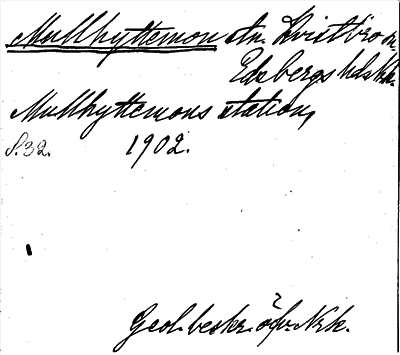 Mullhyttemon stn. Kvistbro sn.
Edsbergs hd. Nk.
Mullhyttemons station,
S.32. 1902.
Geol. beskr. öfv. Nrk.